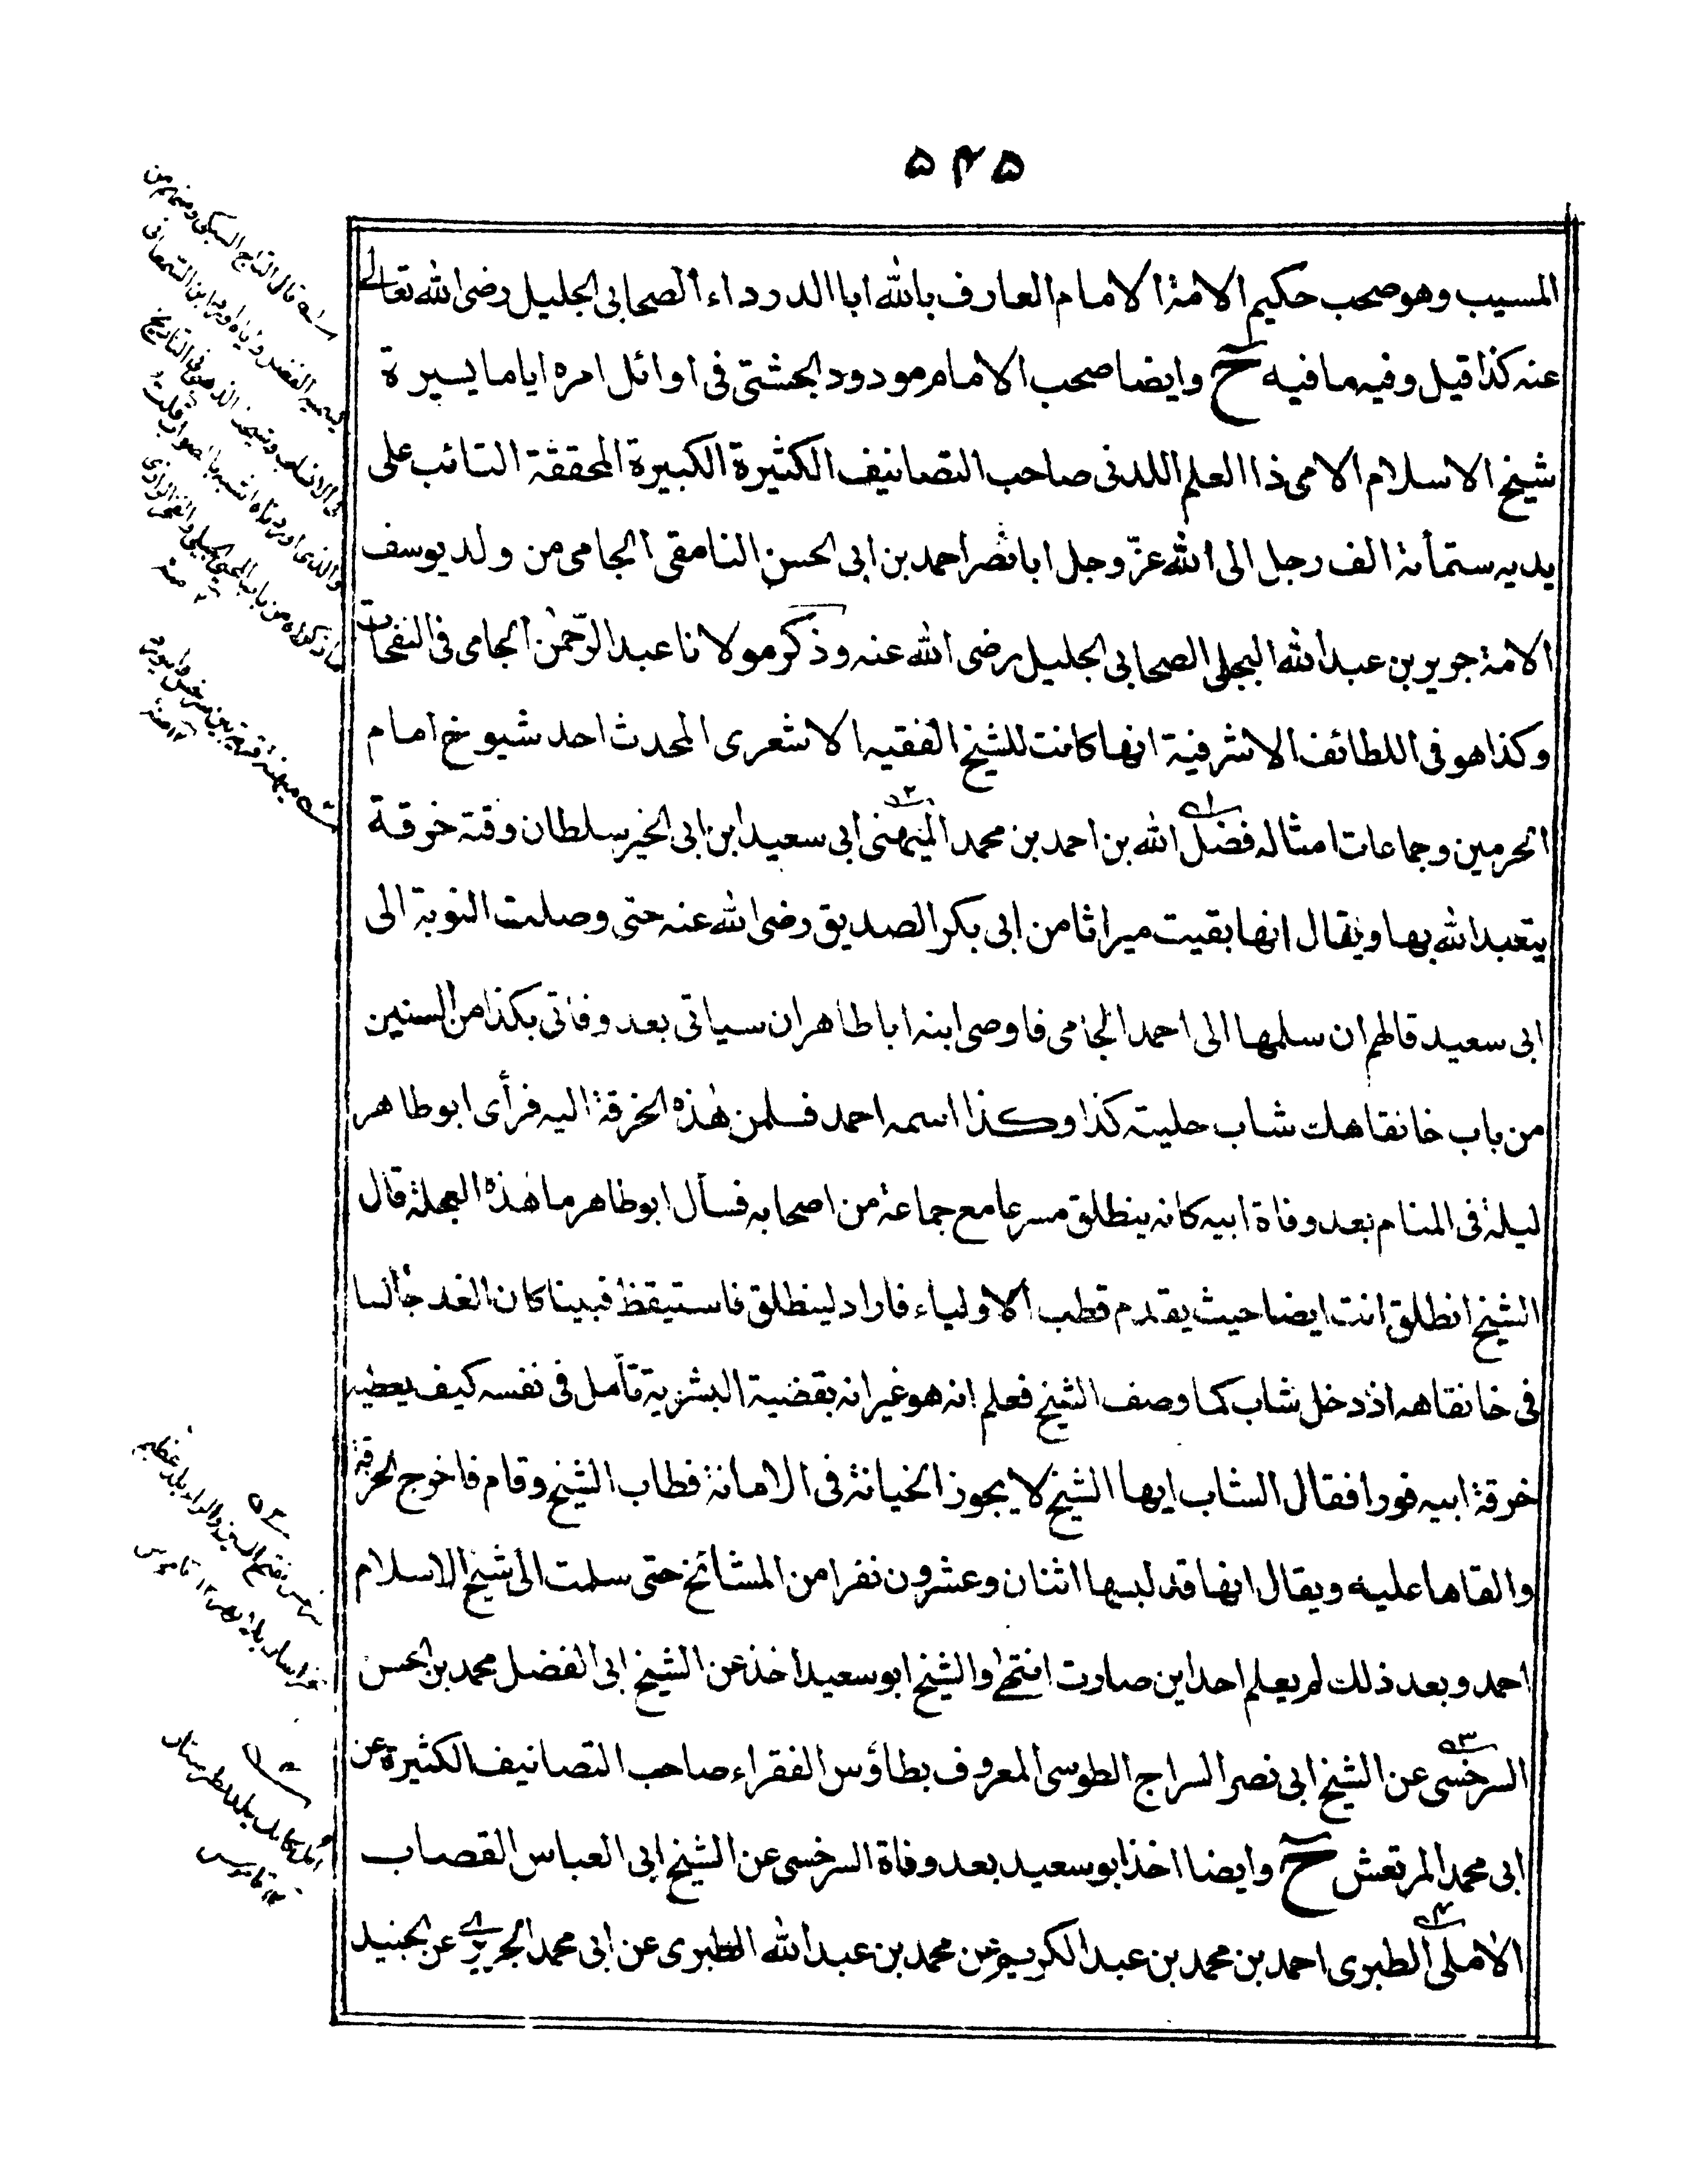 ۵۴۵
المسيب وهو صحب حكيم الامة الامام العارف بالله ابا الدرداء الصحابى الجليل رضى الله تعالى
عنه كذا قيل وفيه ما فيه ح وايضا صحب الامام مودود الجشتى فى اوائل امره اياما يسيرة
شيخ الاسلام الامى ذا العلم اللدنى صاحب التصانيف الكثيرة الكبيرة المحققة التائب على
يديه ستمأئة الف رجل الى الله عزّ وجل ابا نصر احمد بن ابى الحسن النامقى الجامى من ولد يوسف
الامة جرير بن عبد الله البجلى الصحابى الجليل رضى الله عنه وذكر مولانا عبد الرّحمٰن الجامى فى النفحات
وكذا هو فى اللطائف الاشرفية انها كانت للشيخ الفقيه الاشعرى المحدث احد شيوخ امام
الحرمين وجماعات امثاله فضل الله بن احمد بن محمد الميهنى ابى سعيد ابن ابى الخير سلطان وقته خرقة
يتعبد الله بها ويقال انها بقيت ميراثا من ابى بكر الصديق رضى الله عنه حتى وصلت النوبة الى
ابى سعيد فالهم ان سلمها الى احمد الجامى فاوصى ابنه ابا طاهر ان سياتى بعد وفاتى بكذا من السنين
من باب خانقاهك شاب حليته كذا وكذا اسمه احمد فسلمن هٰذه الخرقة اليه فرأى ابو طاهر
ليلة فى المنام بعد وفاة ابيه كانه ينطلق مسرعا مع جماعة من اصحابه فسأل ابو طاهر ما هٰذه العجلة قال
الشيخ انطلق انت ايضا حيث يقدم قطب الاولياء فاراد لينطلق فاستيقظ فبينا كان الغد جالسا
فى خانقاهه اذ دخل شاب كما وصف الشيخ فعلم انه هو غير انه بقضية البشرية تأمل فى نفسه كيف يعطيه
خرقة ابيه فورا فقال الشاب ايها الشيخ لا يجوز الخيانة فى الامانة فطاب الشيخ وقام فاخرج الخرقة
والقاها عليه ويقال انها قد لبسها اثنان وعشرون نفرا من المشائخ حتى سلمت الى شيخ الاسلام
احمد وبعد ذلك لم يعلم احد اين صارت انتهى والشيخ ابو سعيد اخذ عن الشيخ ابى الفضل محمد بن الحسن
السرخسى عن الشيخ ابى نصر السراج الطوسى المعروف بطاؤس الفقراء صاحب التصانيف الكثيرة عن
ابى محمد المرتعش ح وايضا اخذ ابو سعيد بعد وفاة السرخسى عن الشيخ ابى العباس القصاب
الاٰملى الطبرى احمد بن محمد بن عبد الكريم عن محمد بن عبد الله الطبرى عن ابى محمد الجريرى عن الجنيد
قال التاج السبكى ومنهم من
يسميه الفضل